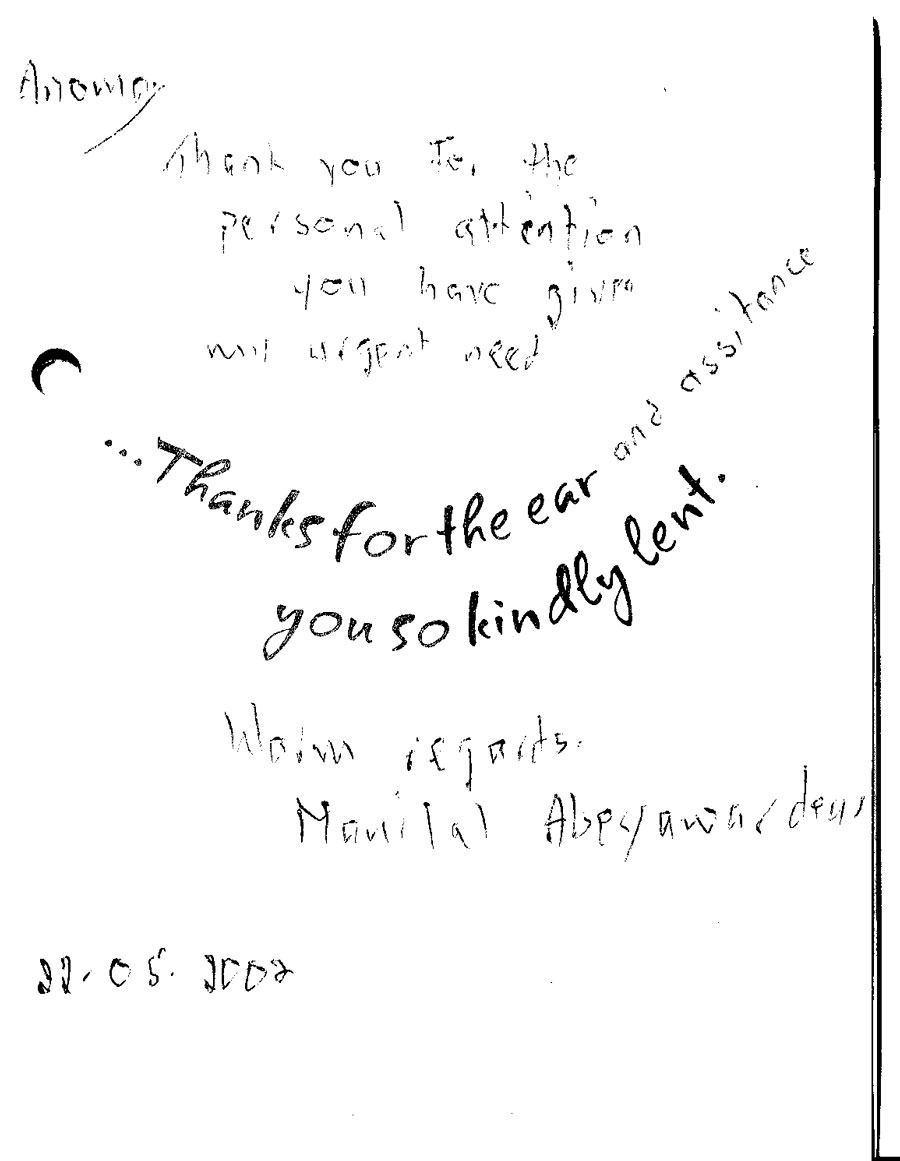 Anoma
Thank you for the
personal attention
you have given
my urgent need
...Thanks for the ear and assitance
you so kindly lent.
Warm regards.
Manilal
22.05.2002